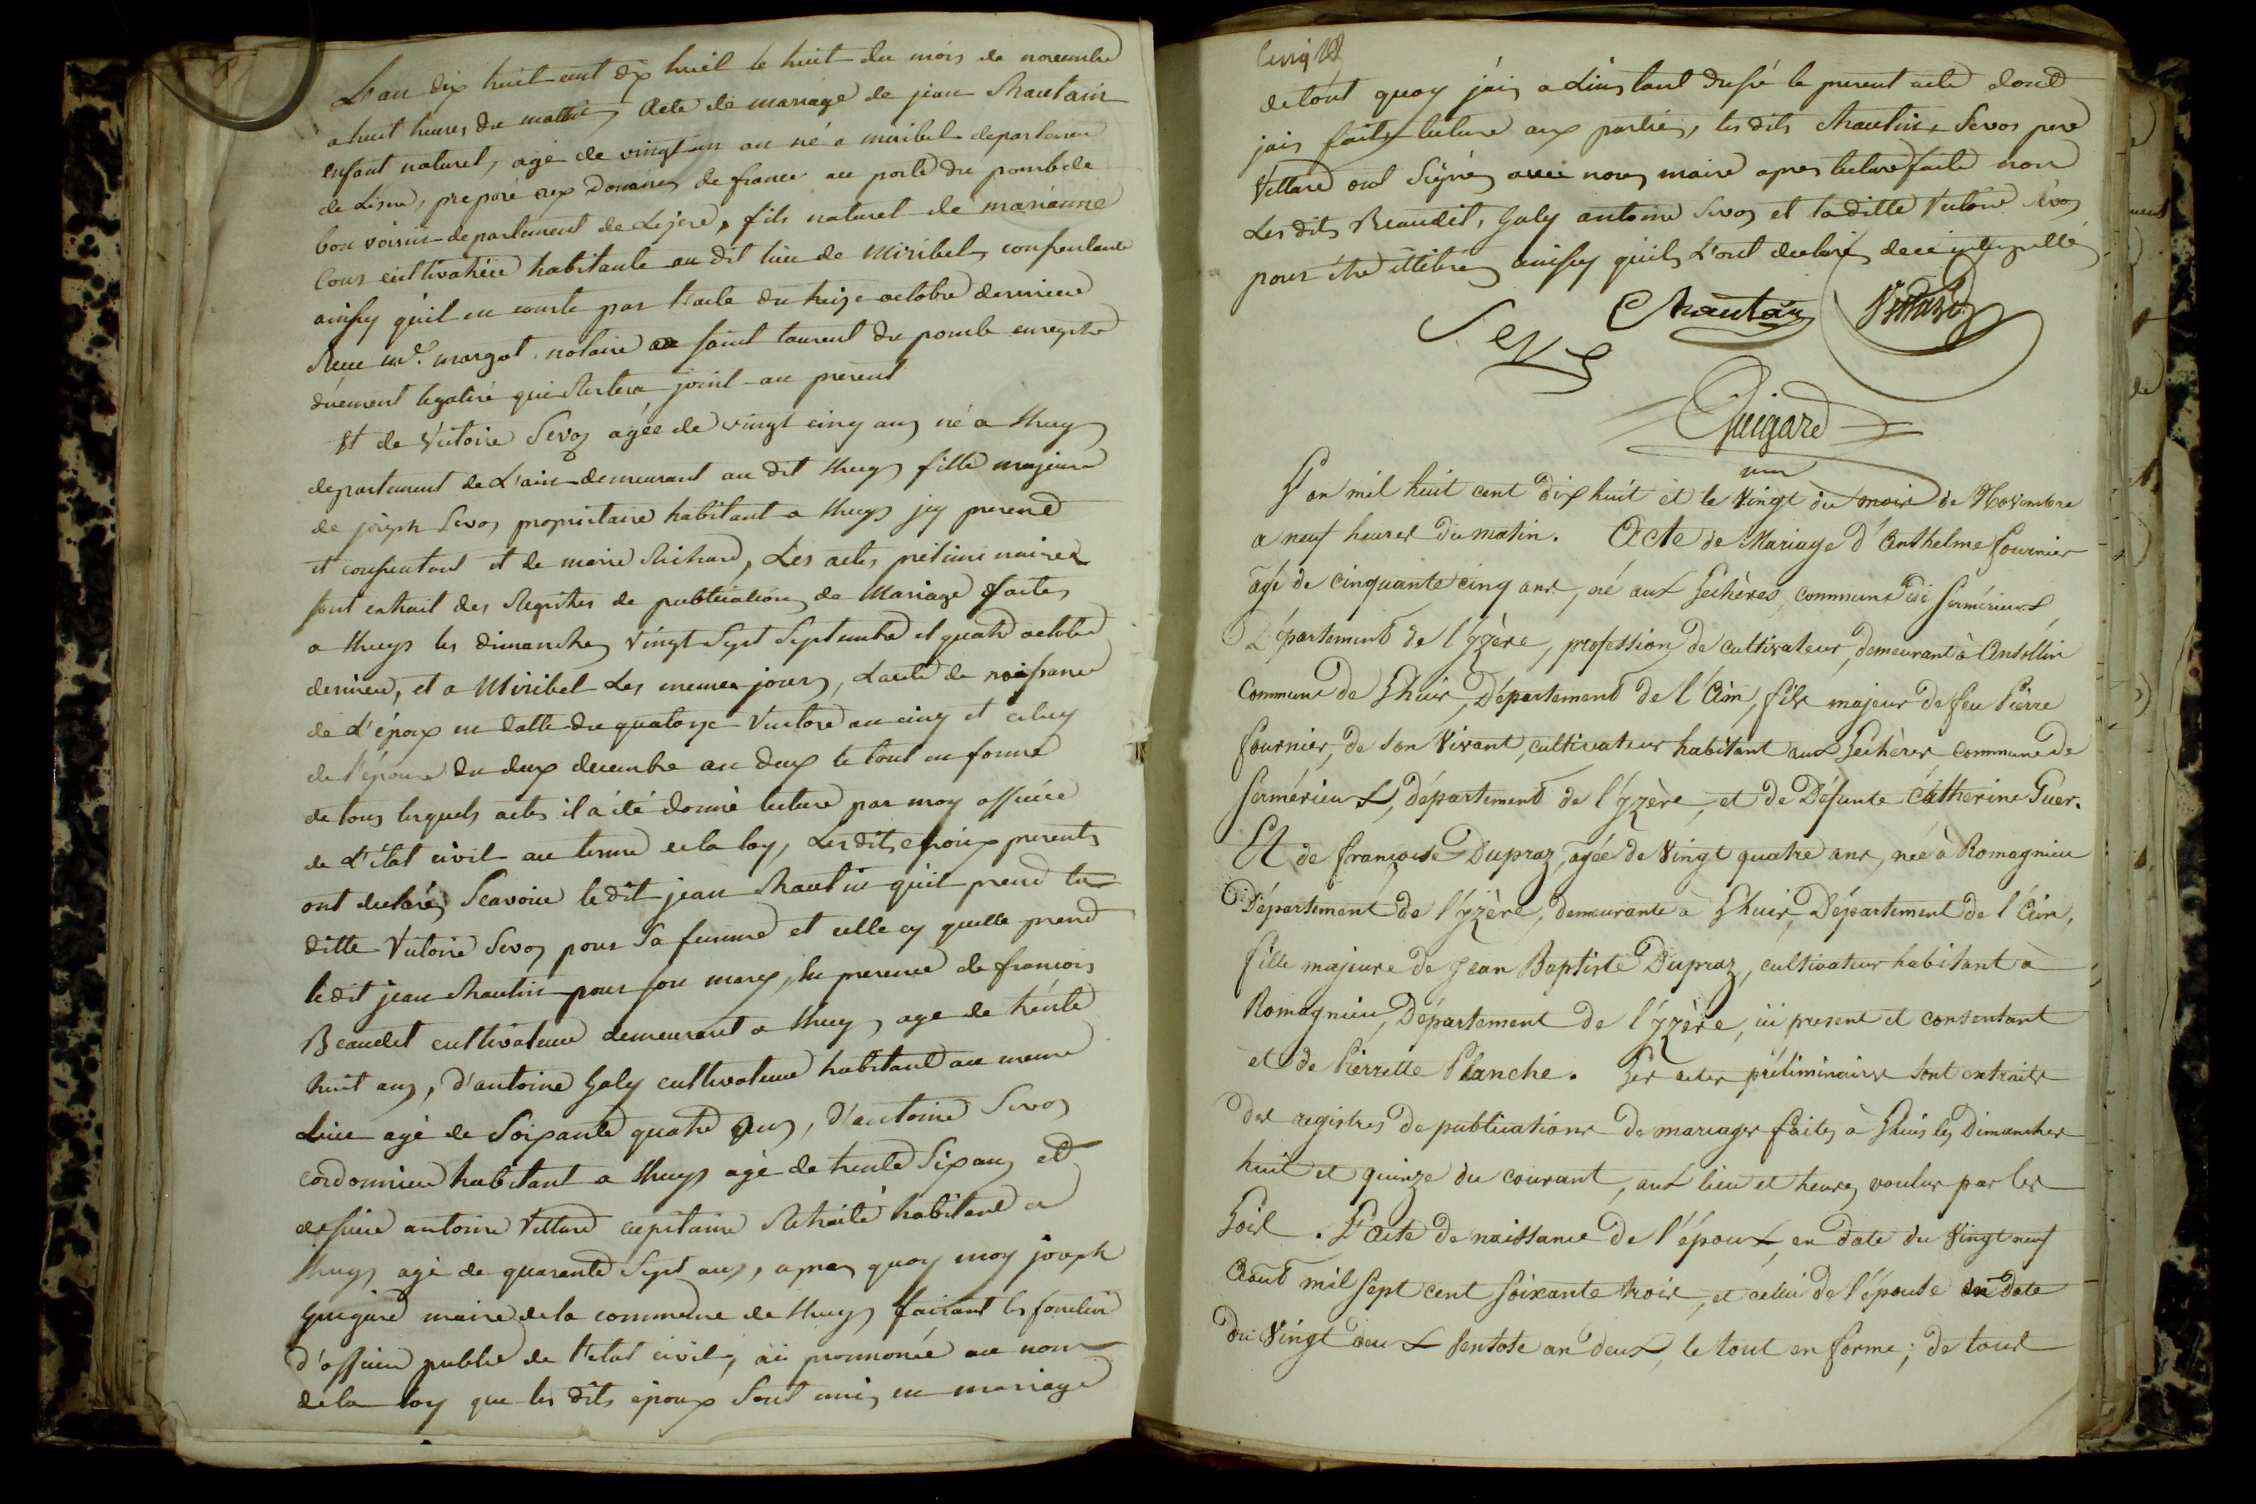 L'an dix huit cent dix huit le huit du mois de novembre
a huit heures du mattin, Acte de mariage de jean Chautain
enfant naturel, agé de vingt un an né a miribel departemen
de Lisere, preposé aux Douanes de france au poste du pombde
bon voisin departement de Lizere, fils naturel de marianne
Cous cultivatrice habitante au dit lieu de Miribel, consentante
ainsy qu'il en conste par l'acte du treize octobre dernier
Recu mr. margot notaire a saint laurent du pombe enregistré
duement legalisé qui Restera joint au present
Et de Victoire Sevoz agée de vingt cinq ans né a thuys
departement de L'ain demeurant au dit thuys fille majeure
de joseph Sevoz proprietaire habitant a thuys jcy present
et consentant et de marie Richard, Les actes preliminaires
sont extrait des Registres de publication de Mariage faites
a thuys les dimanches vingt Sept Septembre et quatre octobre
dernier, et a Miribel Les memes jours, Lacte de naissance
de L'époux en datte du quatorze Ventose an cinq et celuy
de l'épouse du deux decembre an deux le tout en forme
de tous lesquels actes il a été donné lecture par moy officier
de L'état civil au terme de la loy, Les dits epoux presents
ont declarés Scavoir le dit jean Chautin quil prend la
ditte Victoire Sevoz pour Sa femme et celle cy quelle prend
le dit jean Chautin pour son mary, En presence de francois
Beaudet cultivateur demeurant a thuys age de trente
huit ans, d'antoine Galy cultivateur habitant au meme
Lieu agé de Soixante quatre ans, D'antoine Sevoz
cordonnier habitant a thuys agé de trente Six ans et
de sieur antoine Vettard capitaine Retraité habitant a
thuys agé de quarante Sept ans, apres quoy moy joseph
Guigard maire de la commune de thuys faisant les fonction
d'officier public de l'etat civil, ai prononcé au nom
de la loy que les dits époux Sont unis en mariage
de tout quoy j'ais a L'instant dressé le present acte dont
jais faite lecture aux parties, les dits Chautin, Sevos pere
Vettard ont Signés avec nous maire apres lecture faite non
Les dits Beaudet, Galy antoine Sevoz et la ditte Victoire Sevoz
pour être illitirés ainsy quils L'ont declaré de ce interpellés
Chautain Vettard
Sevoz
Guigard
L'an mil huit cent dix huit et le Vingt du mois de Novembre
a neuf heures du matin. Acte de Mariage d'Anthelme fournier
âgé de cinquante cinq ans, né aux Sechères commune de Sermérieux
Département de l'Yzère, profession de cultivateur, demeurant à Ansollin
Commune de Thuis, Département de l'Ain, fils majeur de feu Pierre
fournier, de son Vivant, cultivateur habitant aux Sechères commune de
Sermérieux, département de l'Yzère, et de Défunte Catherine Guer.
Et de françoise Dupraz, agée de Vingt quatre ans, née à Romagnieu
Département de l'Yzère, demeurante à Thuis, Département de l'Ain,
fille majeure de Jean Baptiste Dupraz, cultivateur habitant à
Romagnieu, Département de l'Yzère, ici present et consentant
et de Pierrette Planche. Les actes préliminaires sont extraits
des registres de publications de mariages faites à Thuis les Dimanches
huit et quinze du courant, aux lieu et heures voulus par les
Lois. L'Acte de naissance de l'époux, en date du Vingt neuf
Aout mil sept cent soixante trois, et celui de l'épouse en date
du Vingt deux Ventose an deux, le tout en forme; de tous